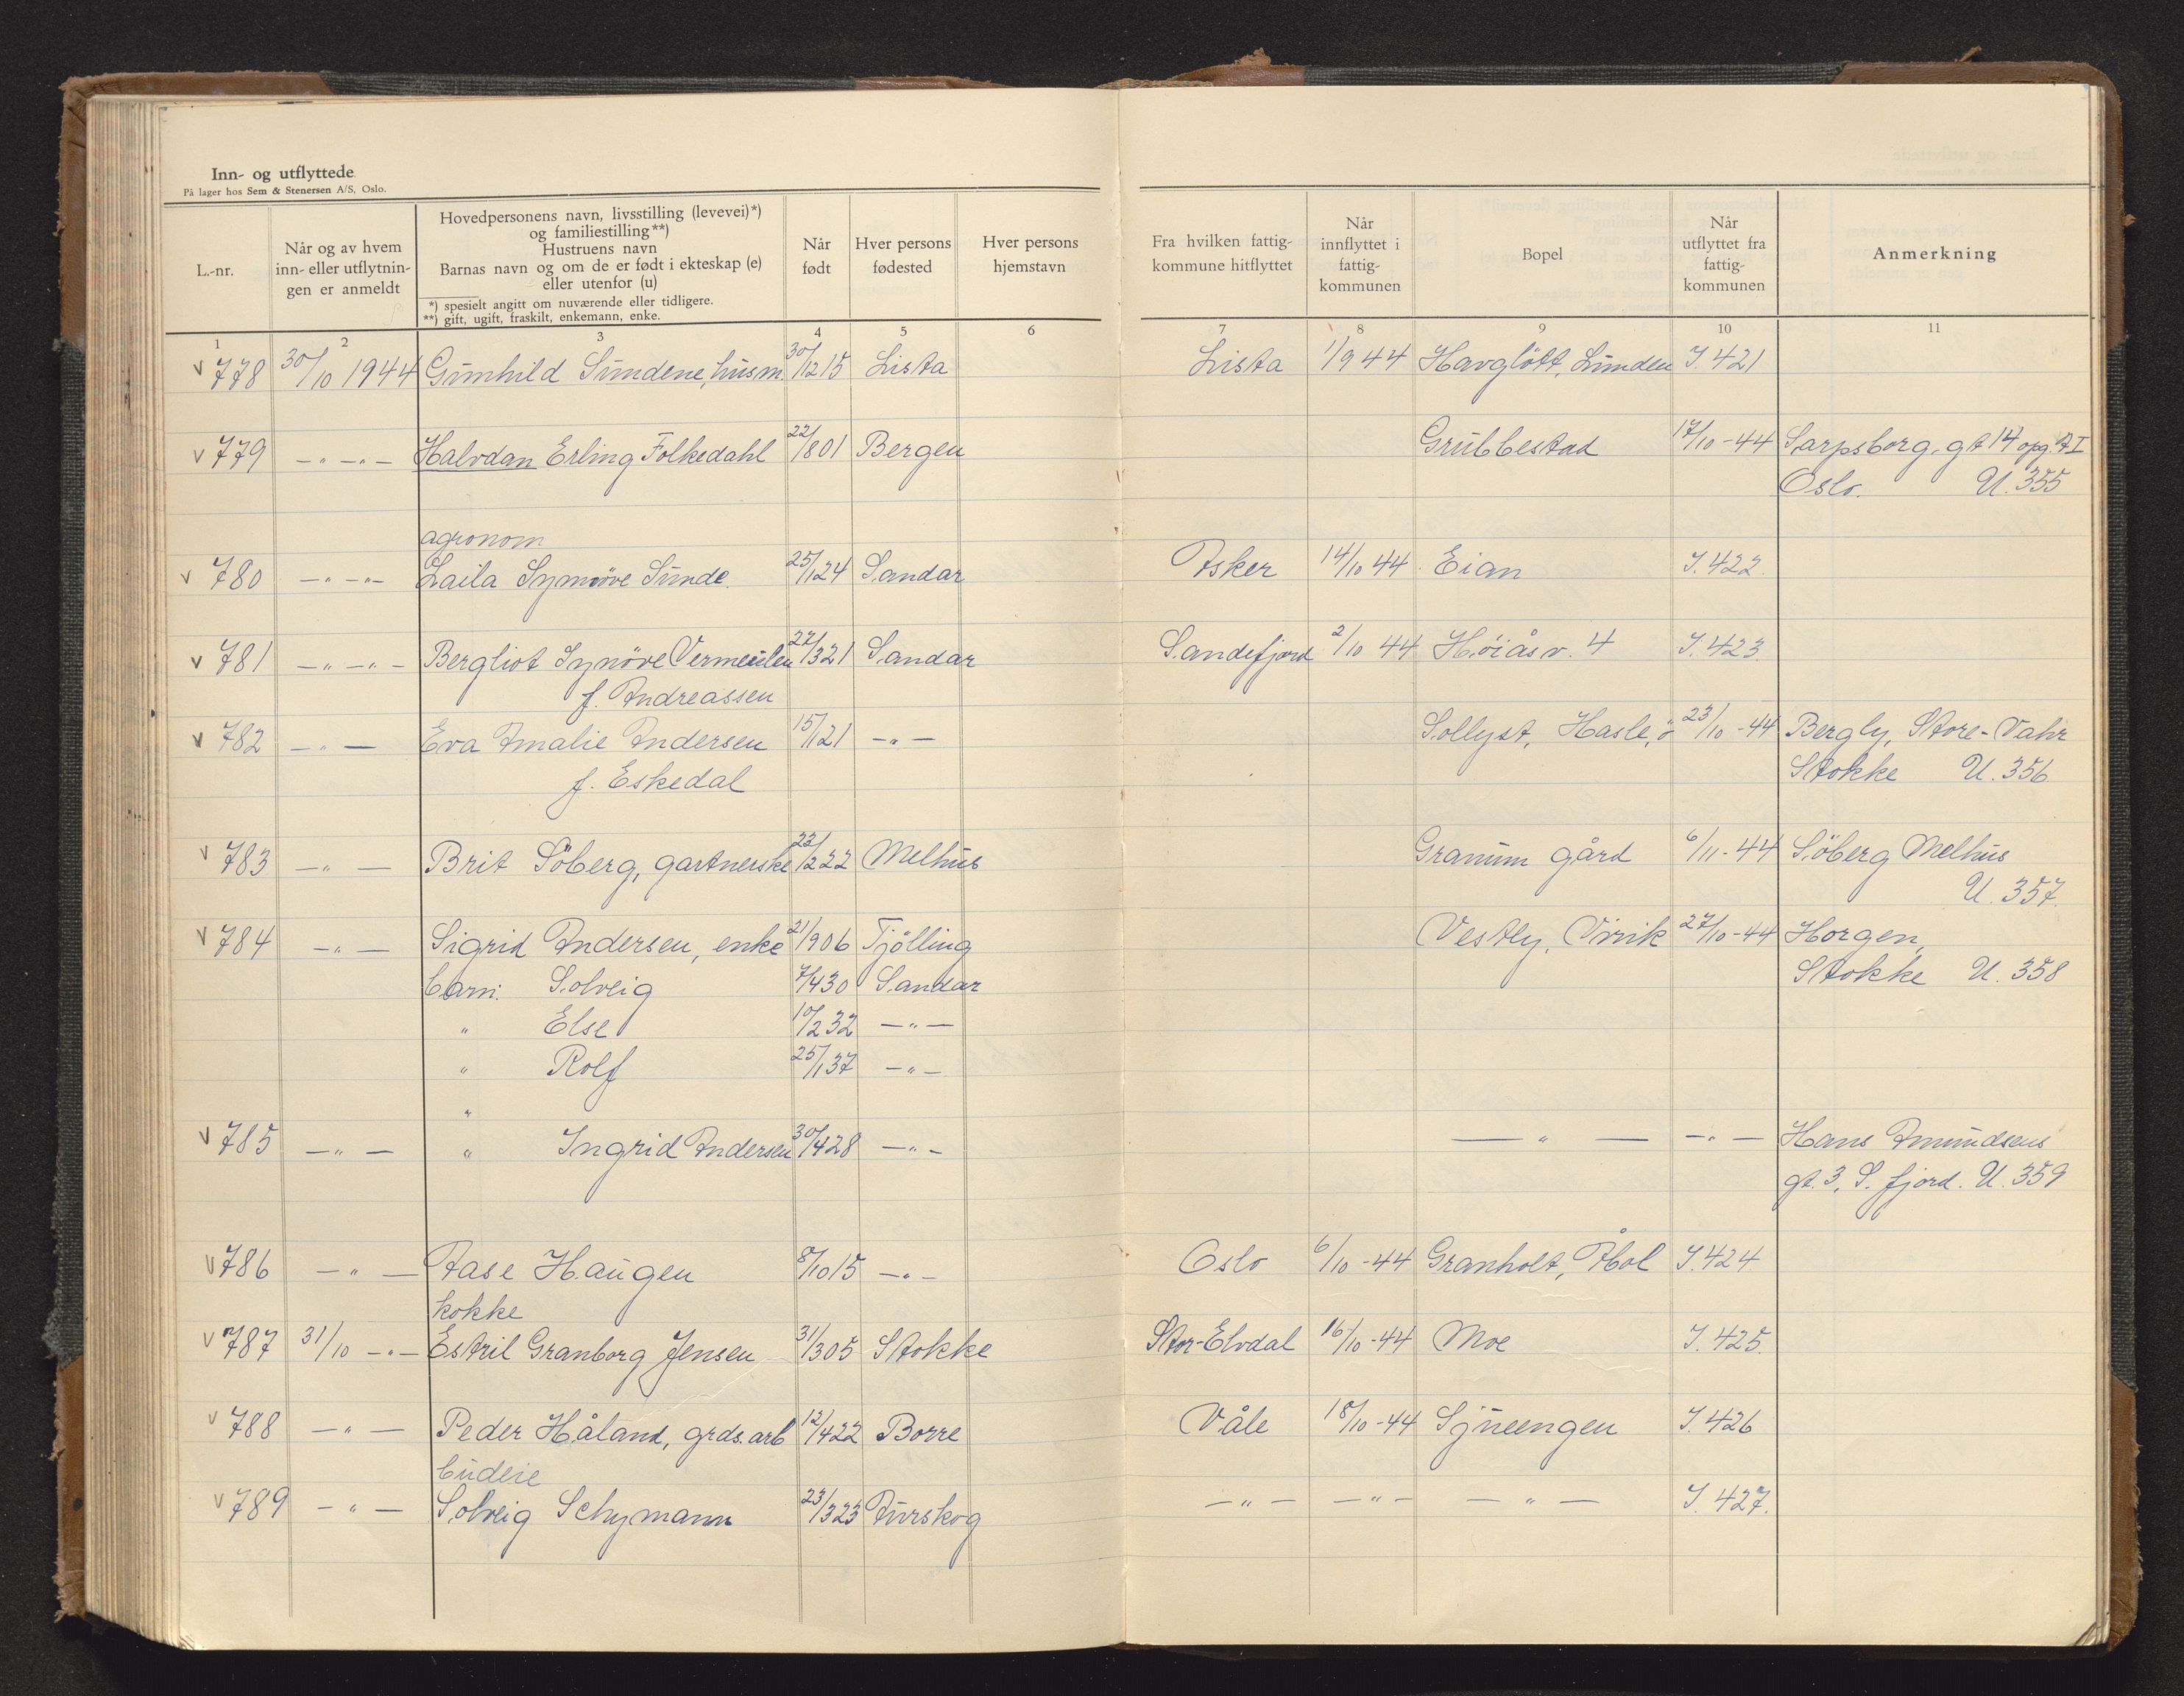 Inn- og utflyttede
På lager hos Sem & Stenersen A/S, Oslo.
L.-nr.
Når og av hvem
inn- eller utflytnin-
gen er anmeldt
Hovedpersonens navn, livsstilling (levevei)*)
og familiestilling**)
Hustruens navn
Barnas navn og om de er født i ekteskap (e)
eller utenfor (u)
*) spesielt angitt om nuværende eller tidligere.
**) gift, ugift, fraskilt, enkemann, enke.
Når
født
Hver persons
fødested
Hver persons
hjemstavn
Fra hvilken fattig-
kommune hitflyttet
Når
innflyttet i
fattig-
kommunen
Bopel
Når
utflyttet fra
fattig-
kommunen
Anmerkning
1 2 3 4 5 6 7 8 9 10 11
v 778 30/10 1944 Gunhild Sundene, husm. 30/12 15 Lista Lista 1/9 44 Havglött, Lunden I. 421
v 779 -"- -"- Halvdan Erling Folkedahl 22/8 01 Bergen Grubbestad 17/10-44 Sarpsborg. gt 14 opg. A I
Oslo. U. 355
agronom
v 780 -"- -"- Laila Synnöve Sunde 25/1 24 Sandar Asker 14/10 44 Eian I. 422
v 781 -"- -"- Bergliot Synöve Vermeulen 27/3 21 Sandar Sandefjord 2/10 44 Höiåsv. 4 I. 423
f. Andreassen
v 782 -"- Eva Amalie Andersen 15/1 21 -"- Sollyst, Hasle, ö 23/10-44 Bergly, Store-Vahr
f. Eskedal Stokke U. 356
v 783 -"- Brit Söberg, gartnerske 22/2 22 Melhus Granum gård 6/11-44 Söberg Melhus
U. 357.
v 784 -"- Sigrid Andersen, enke 21/9 06 Tjölling Vestly, Virik 27/10-44 Horgen,
barn: Solveig 7/4 30 Sandar Stokke U. 358
" Else 10/2 32 -"-
" Rolf 25/1 37 -"-
"
v 785 -"- " Ingrid Andersen 30/4 28 -"- -"- -"- Hans Amundsens
gt. 3, S. fjord. U. 359
v 786 -"- Aase Haugen 8/10 15 -"- Oslo 6/10-44 Granholt, Åbol I. 424
kokke
v 787 31/10 -"- Estril Granborg Jensen 31/3 05 Stokke Stor-Elvdal 16/10-44 Moe I. 425
v 788 -"- Peder Håland, grds. arb 12/4 22 Borre Våle 18/10-44 Sjueengen I. 426
budeie
v 789 -"- Solveig Schymann 23/3 23 Aurskog -"- -"- -"- I. 427.